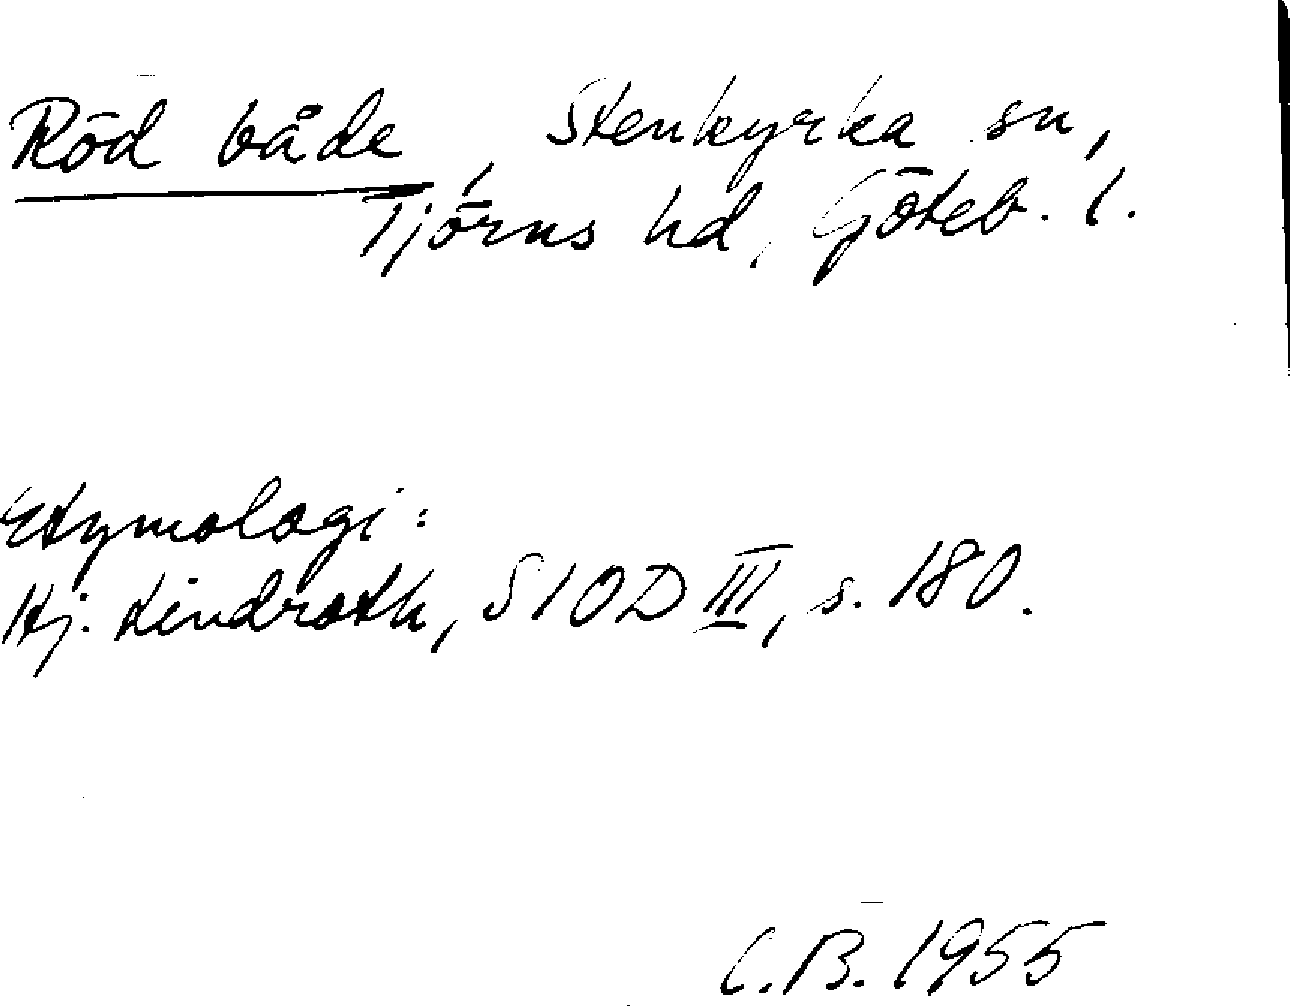 Röd både, Stenkyrka sn,
Tjörns hd, Göteb. l.
Etymologi:
Hj. Lindroth, SIOD III, s. 180.
C.B. 1955